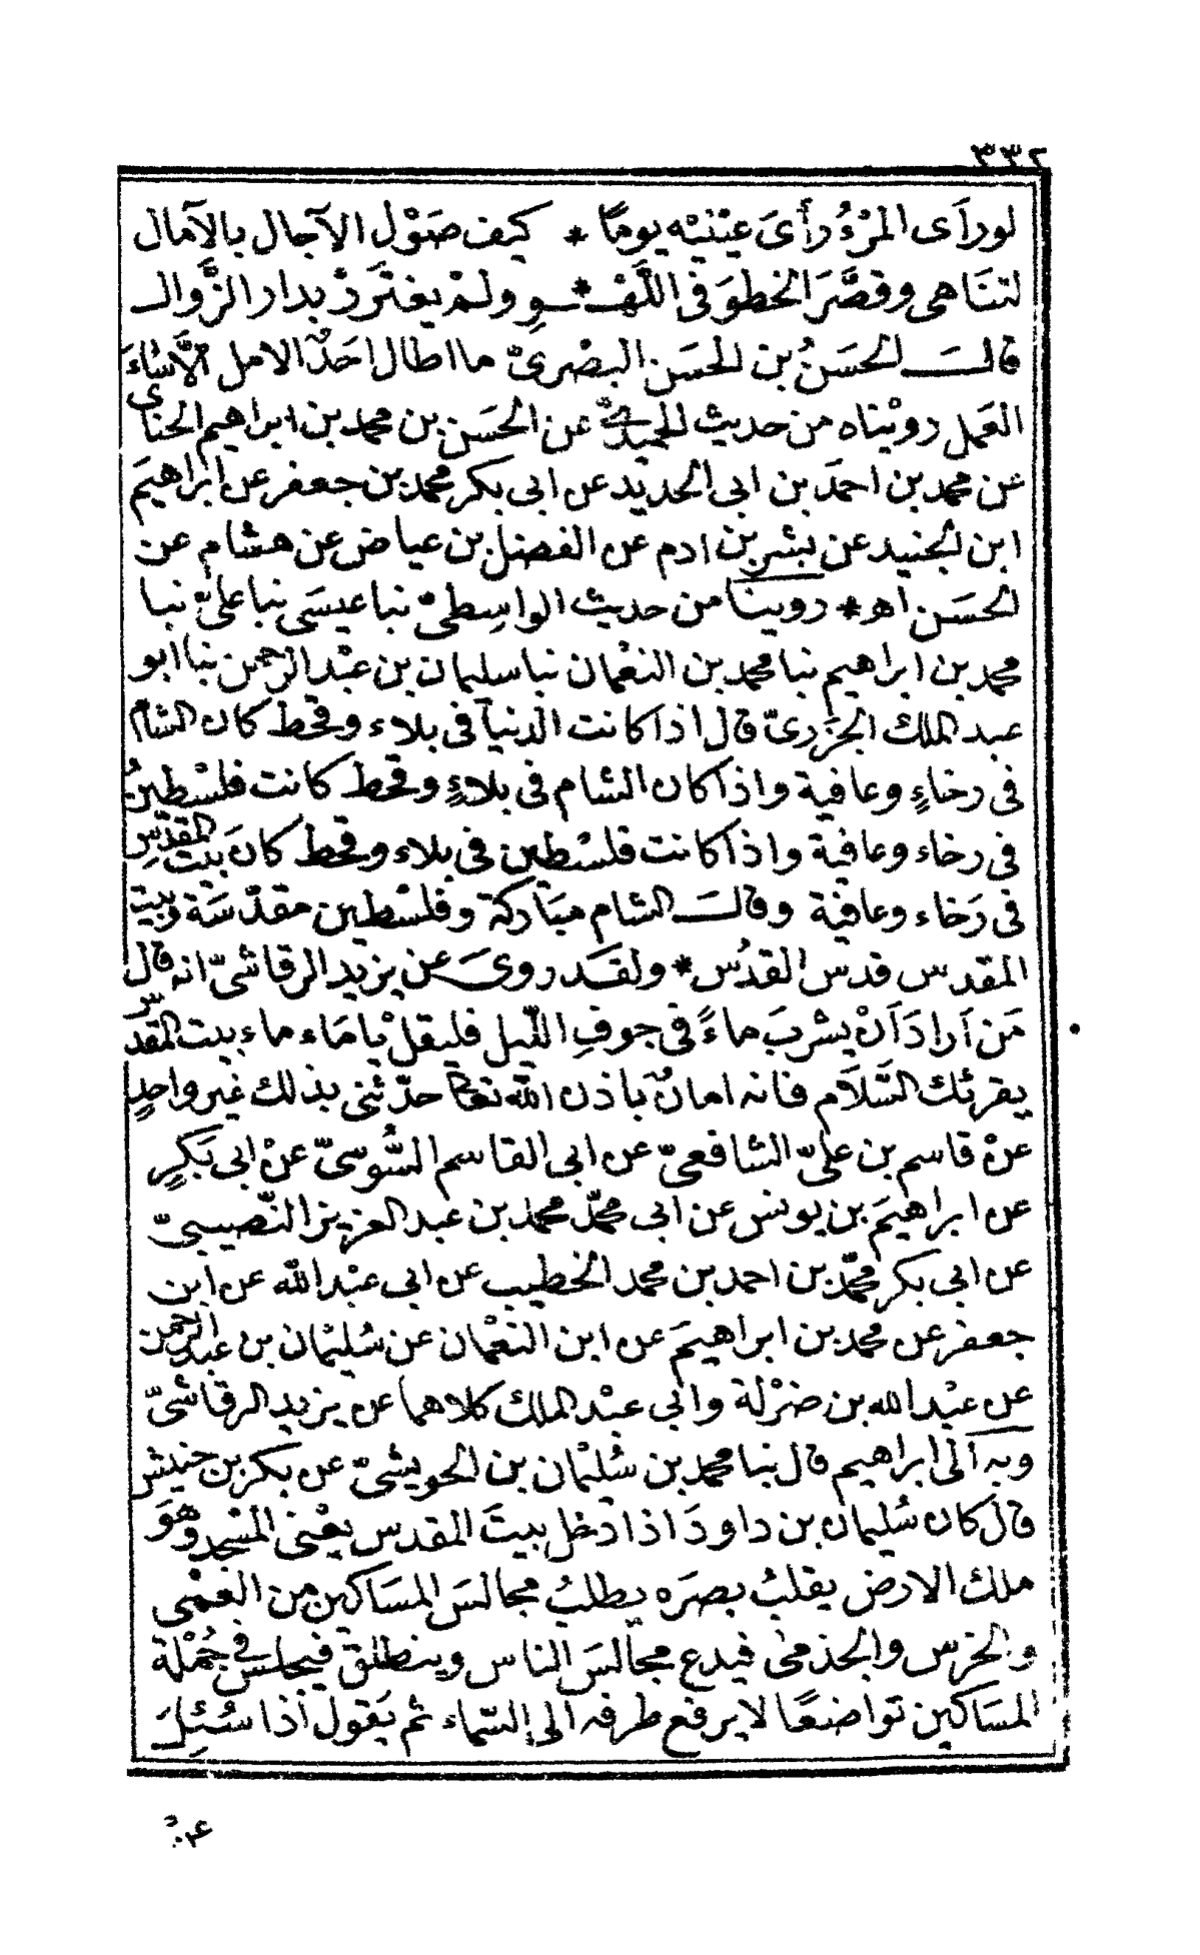 ٣٣٢
لو رأى المرْءُ رأْىَ عيْنيْه يومًا * كيف صَوْل الآجال بالآمال
لتنَاهى وقصَّرَ الخطوَ فى اللَّهْـ * ـوِ ولمْ يغتَررْ بدار الزَّوال
قالـــَ الحَسَنُ بن الحسَن البصْرىّ ما اطال احَدٌ الامل الّا أساءَ
العَمل رويْناه من حديث عن الحَسَن بن محمد بن ابراهيم الحنّاىٔ
عن محمد بن احمَد بن ابى الحديد عن ابى بكر محمد بن جعفر عن ابراهيمَ
ابن الجنيد عن بشر بن ادم عن الفضل بن عياض عن هشام عن
الحسَن اهـ * روينَا من حديث الواسِطىّ نبا عيسَى نبا علىّ نبا
محمد بن ابراهيم نبا محمد بن النعْمان نبا سليمان بن عبْد الرحمن نبا ابو
عبد الملك الجزَرىّ قال اذا كانت الدنيا فى بلاء وقحط كان الشام
فى رخاءٍ وعافية واذا كان الشام فى بلاءٍ وقحط كانت فلسْطينُ
فى رخاء وعافية واذا كانت فلسْطين فى بلاء وقحط كانَ بيت المقدسِ
فى رَخاء وعافية وقالـــَ الشام مبَاركة وفلسْطين مقدّسَة وبيت
المقدس قدس القدُس * ولقَد روىَ عن يزيد الرقاشىّ انه قال
مَن اَرادَ اَنْ يشربَ ماءً فى جوفِ اللّيل فليقلْ يا مَاء ماء بيت المقدس
يقرئك السَّلَام فانه امانٌ باذن الله تعالى حدّثنى بذلك غير واحدٍ
عنْ قاسم بن علىّ الشافعىّ عن ابى القاسم السُّوسىّ عنْ ابى بَكرٍ
عن ابراهيمَ بن يونس عن ابى محمّد محمد بن عبد العزيز النّصيبىّ
عن ابى بكر محمّد بن احمد بن محمد الخطيب عن ابى عبْد الله عن ابن
جعفر عن محمد بن ابراهيمَ عن ابن النعْمان عن سُليْمان بن عبد الرحمن
عن عبْد الله بن ضرْلة وابى عبْد الملك كلاهما عن يزيد الرقاشىّ
وبه الى ابراهيم قال نبا محمد بن سُليْمان بن الحويشىّ عن بكر بن خنيش
قال كان سُليمان بن داودَ اذا دَخل بيتَ المقدس يعْنى المسْجد وهوَ
ملك الارض يقلبُ بصرَه يطلبُ مجالسَ المسَاكين من العمْى
والخرْس والجذمىٰ فيدع مجالسَ الناس وينطلق فيجلس فى جُمْلة
المسَاكين تواضعًا لا يرفع طرفه الى السّماء ثم يَقول اذا سُئِلَ